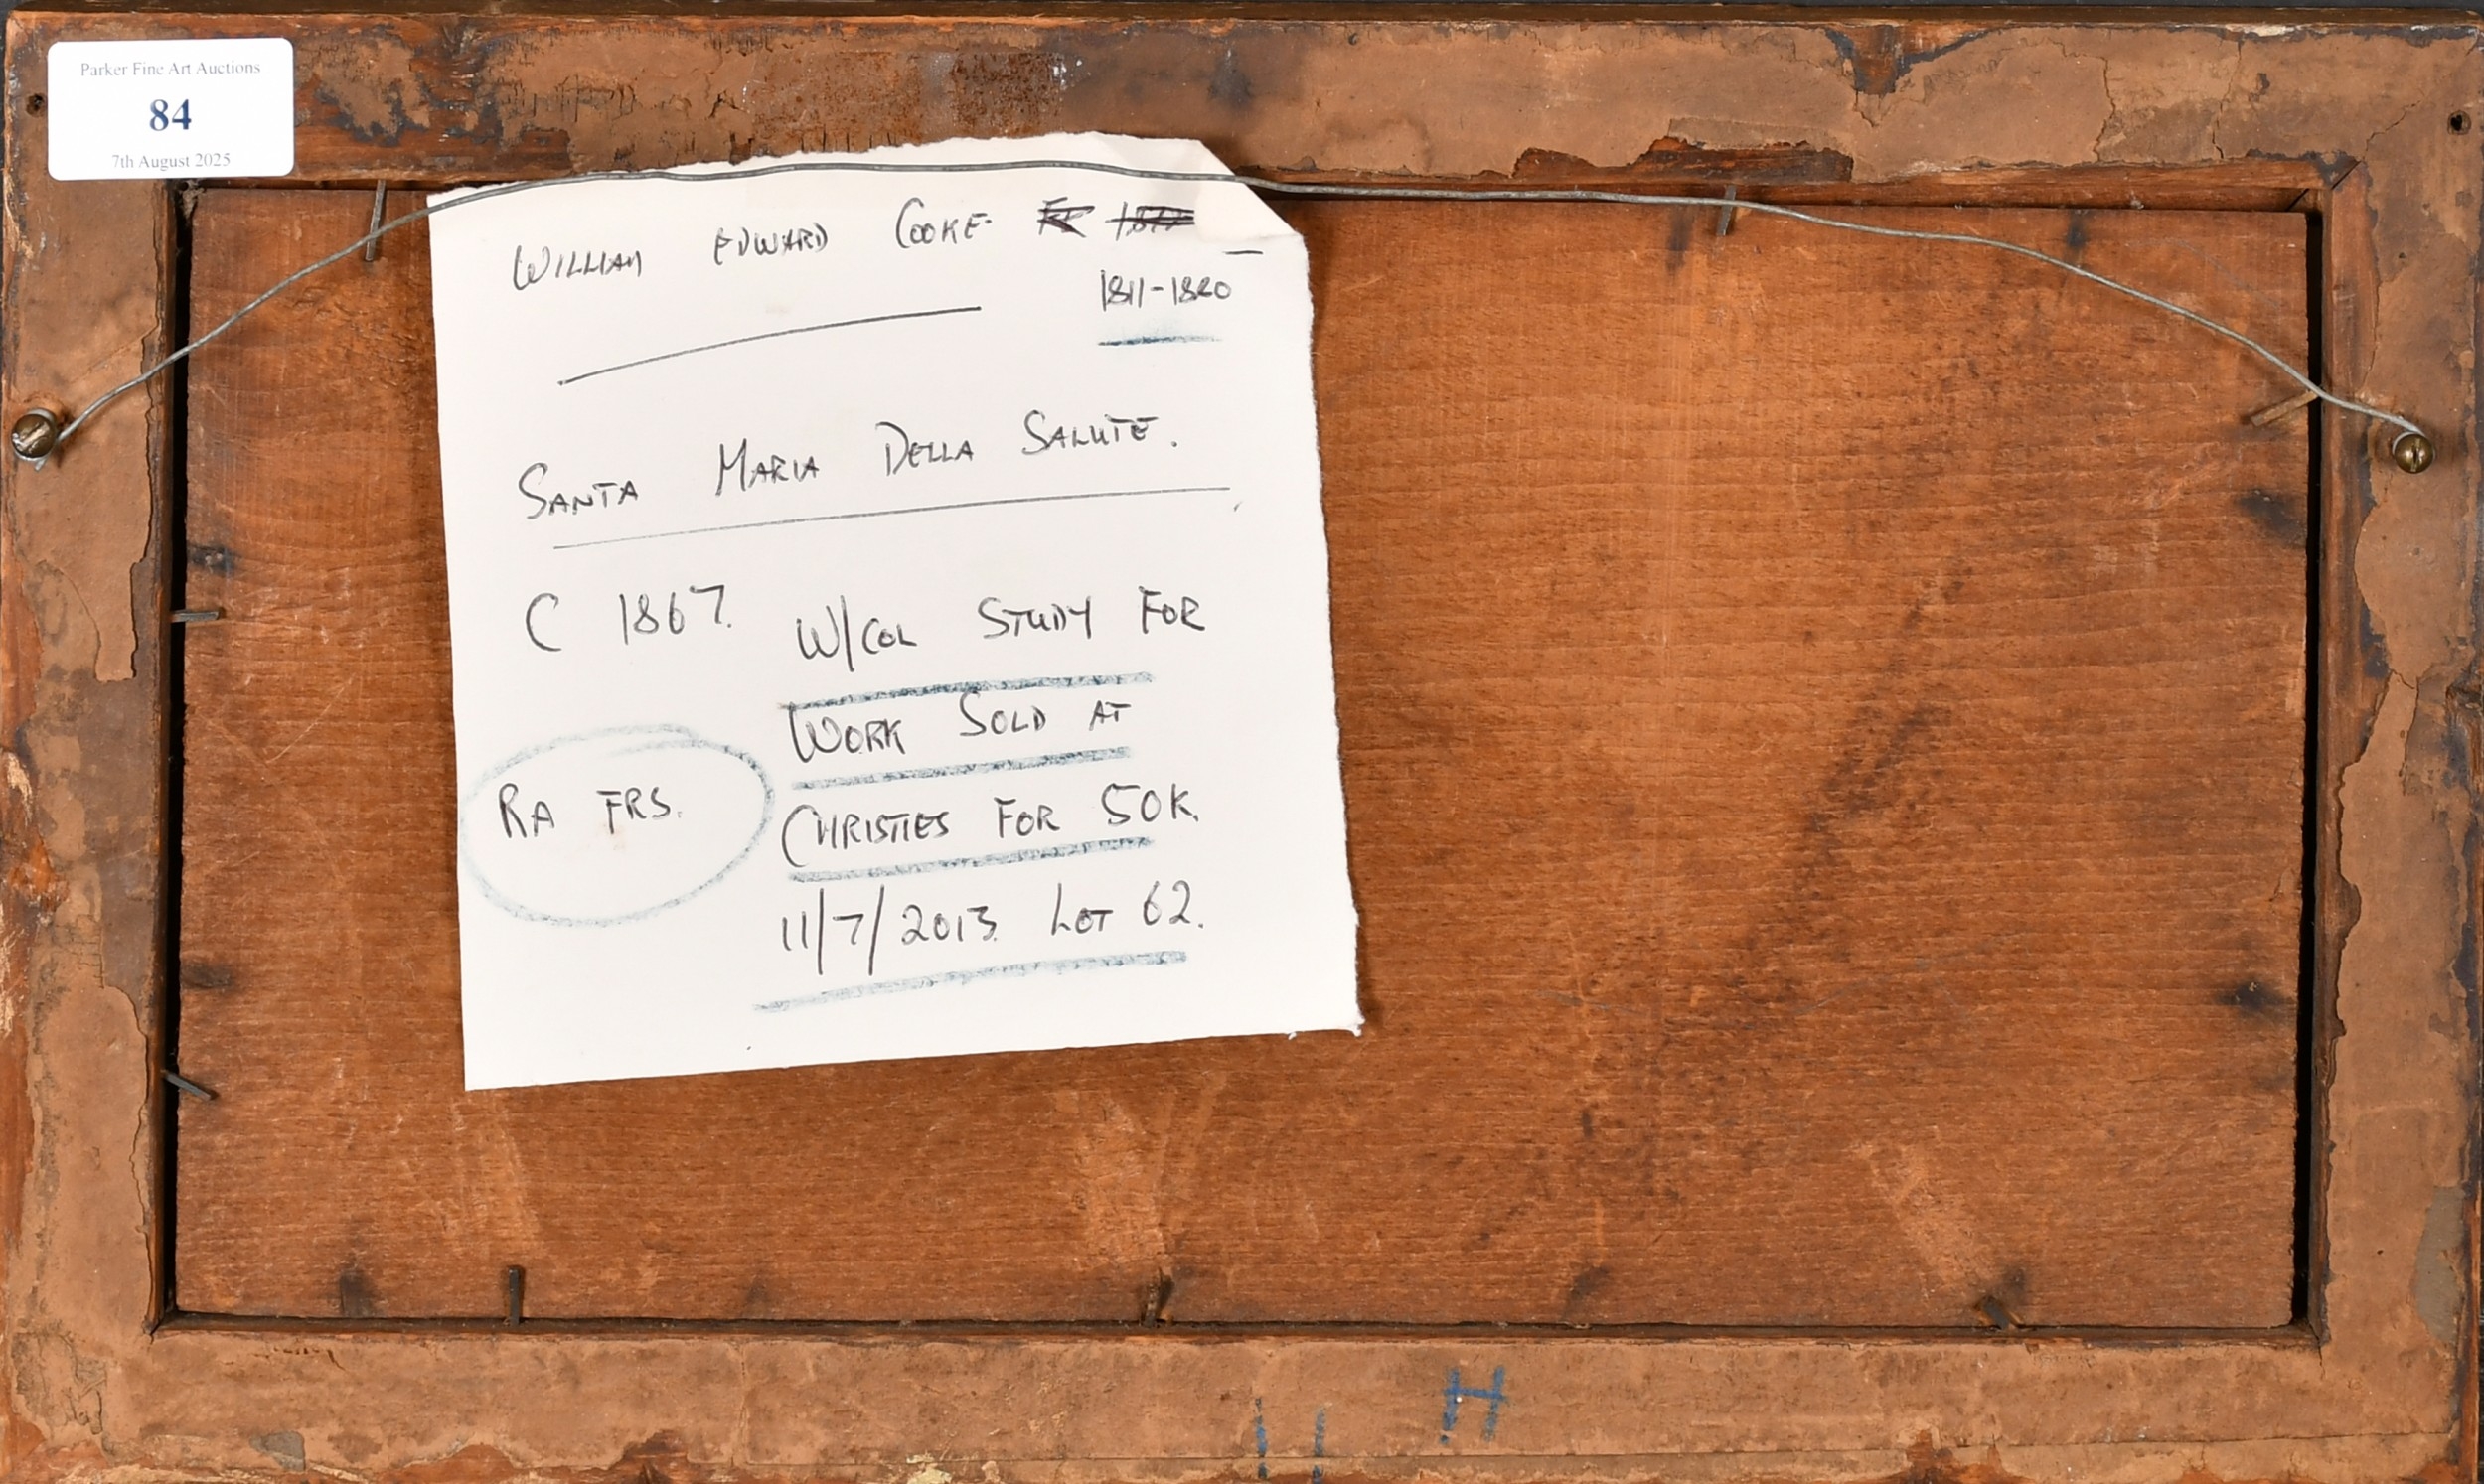 Parker Fine Art Auctions
84
7th August 2025
WILLIAM EDWARD COOKE.
1811-1880
SANTA MARIA DELLA SALUTE.
C 1867.
W/COL STUDY FOR
WORK SOLD AT
CHRISTIES FOR 50K.
11/7/2013. LOT 62.
RA FRS.
H